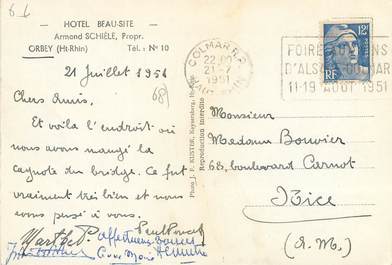 HOTEL BEAU-SITE
Armand SCHIÉLÉ, Propr.
ORBEY (Ht-Rhin) Tél.: N° 10
21 Juillet 1951
68
Chers Amis.
Et voilà l'endroit où
nous avons mangé la
cagnote du bridge. Ce fut
vraiment très bien et nous
avons pensé à vous.
Affectueux
Photo J. P. KUSTER, Kaysersberg, Ht-Rhin
Reproduction interdite
COLMAR R.P.
21-7
1951
HAUT-RHIN
FOIRE AUX VINS
D'ALSACE COLMAR
11-19 AOUT 1951
12F
RF
Monsieur
Madame Bouvier
68, boulevard Carnot
Nice
(A.M.)